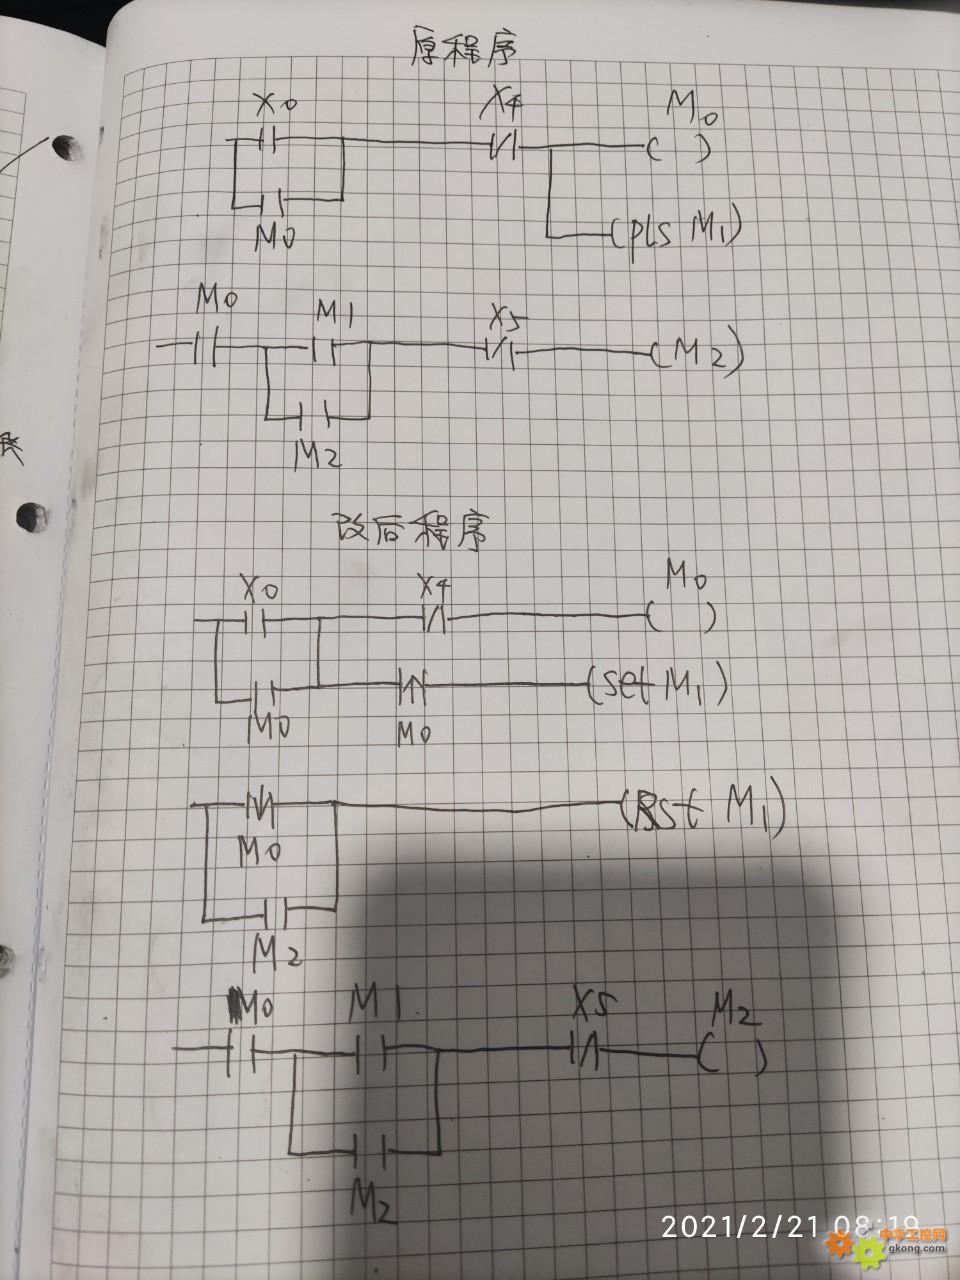 原程序
X0 X4 M0
( )
M0
(PLS M1)
M0 M1 X5
(M2)
M2
改后程序
X0 X4 M0
( )
M0 M0
(Set M1)
(Rst M1)
M0
M2
M0 M1 X5 M2
( )
M2
2021/2/21 08:19
中华工控网
gkong.com